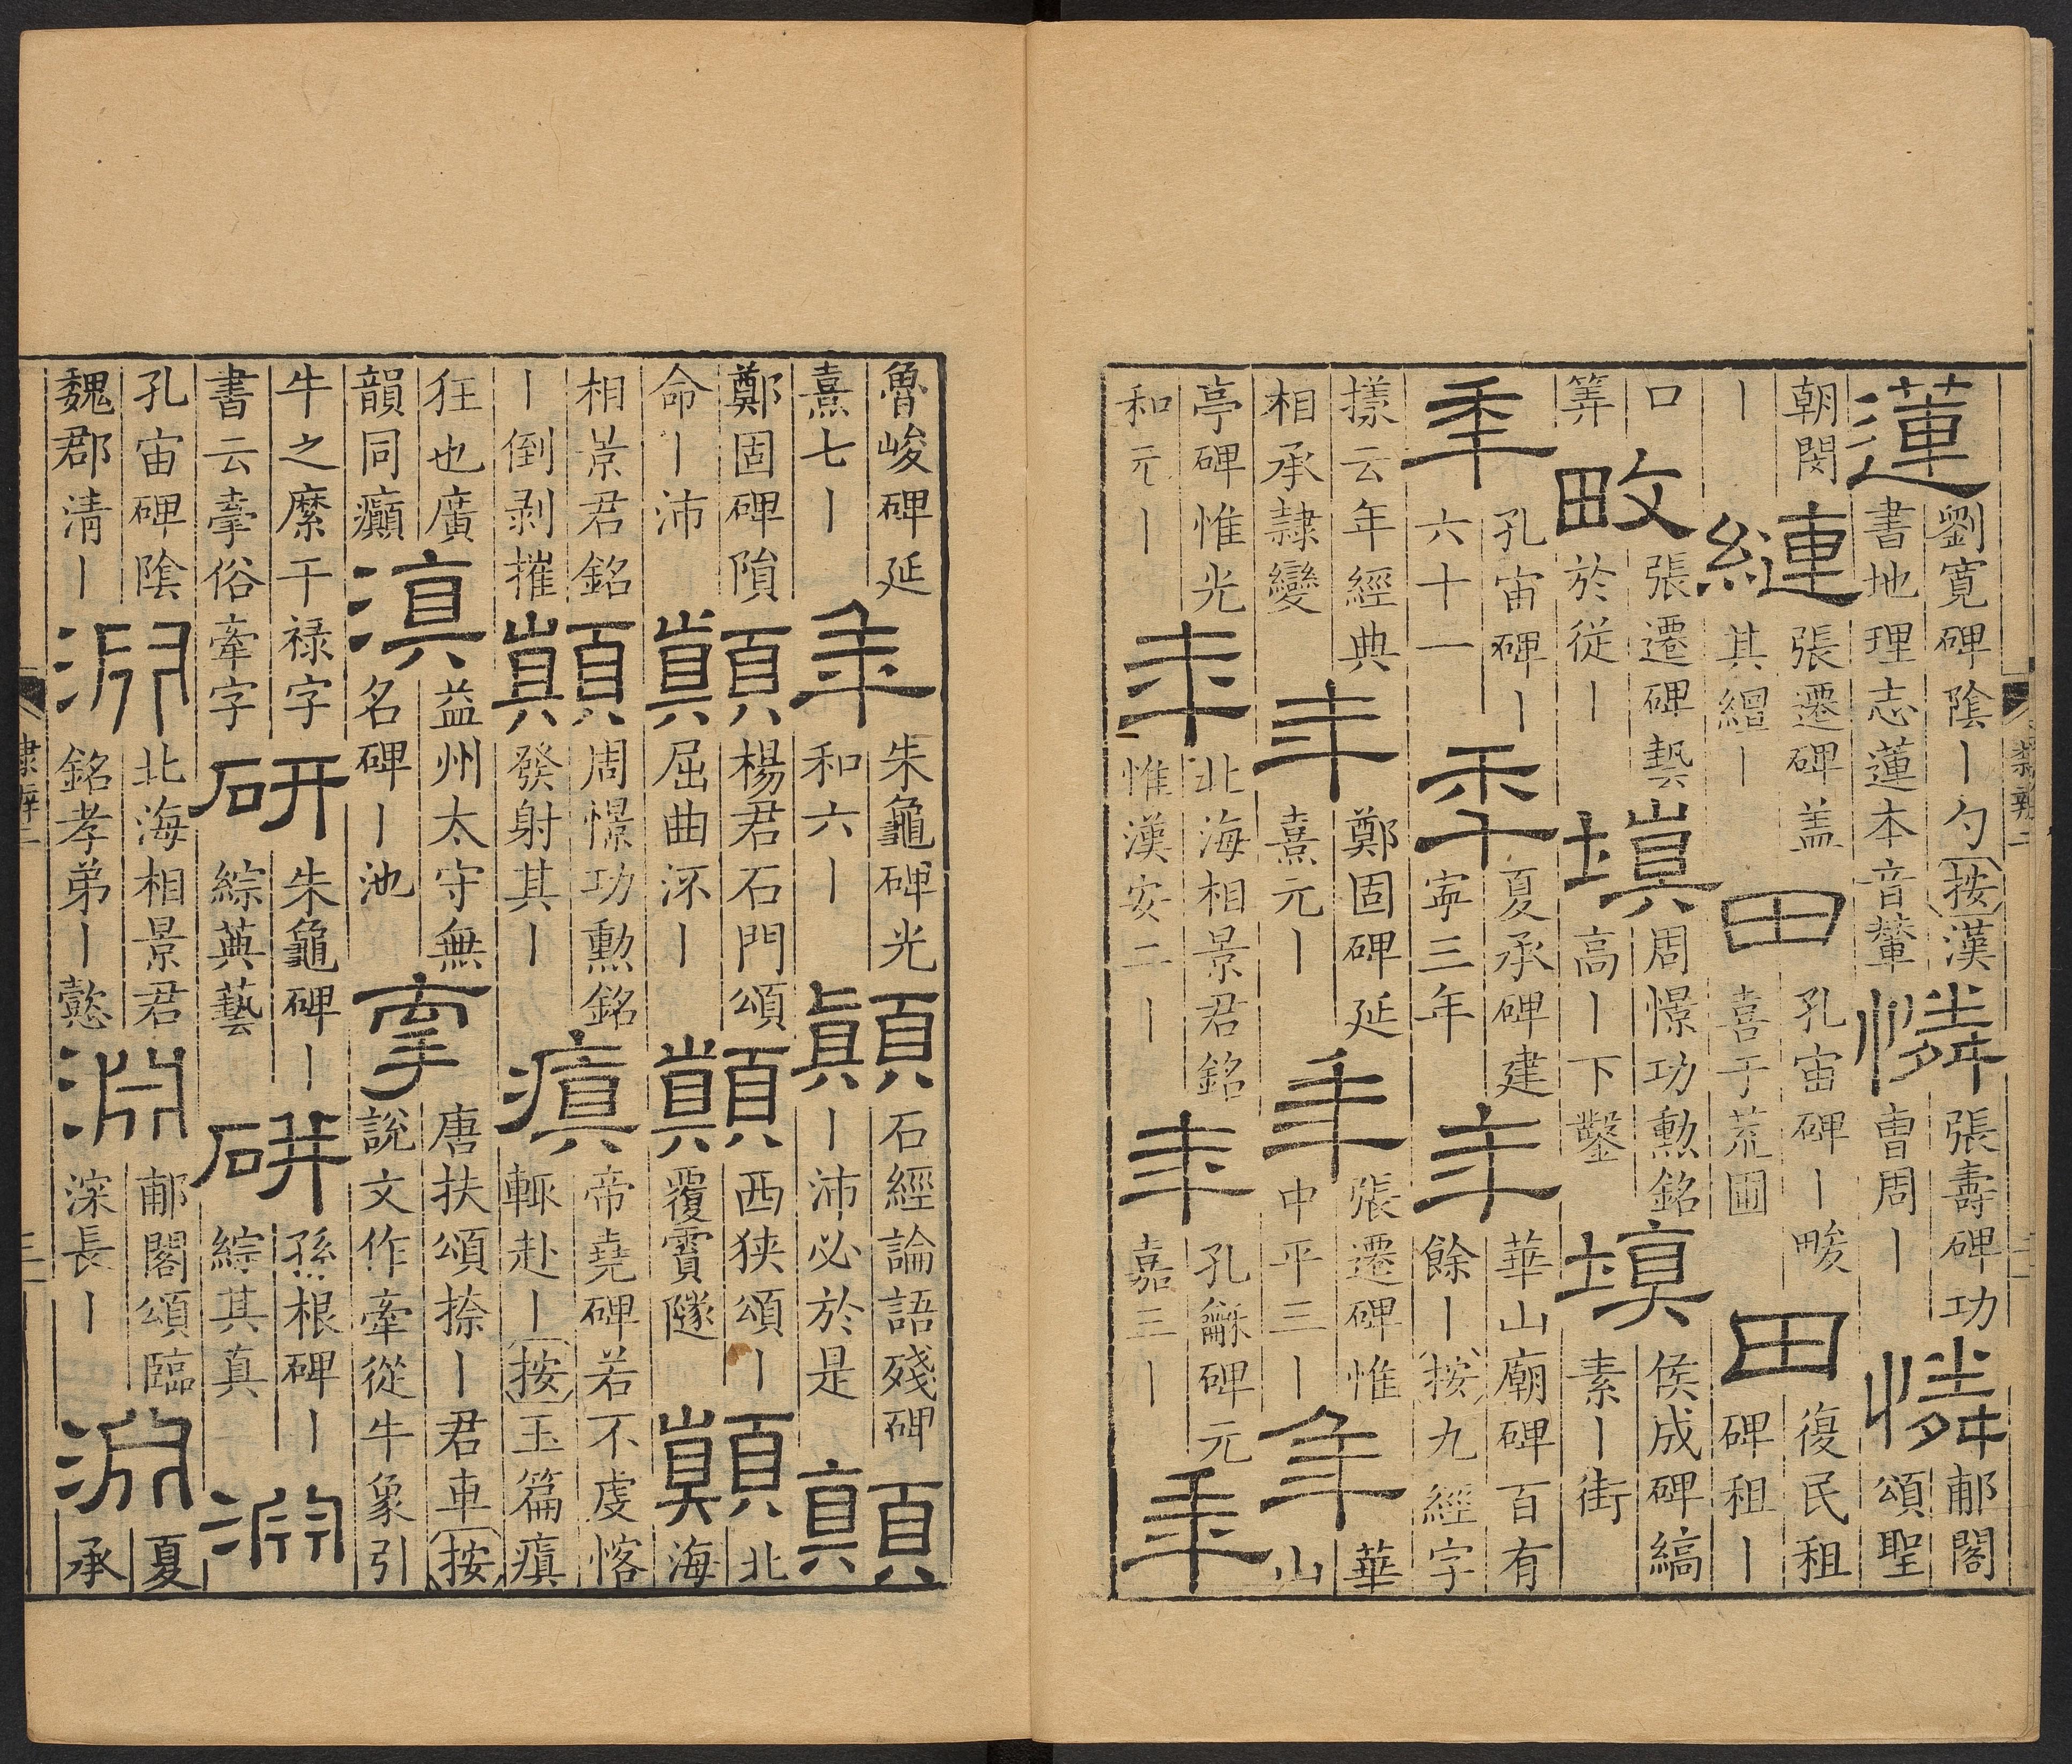 蓮
劉寬碑陰丨勺按漢
書地理志蓮本音輦
憐
張壽碑功
曹周丨
憐
郙閣
頌聖
朝閔
丨
縺
張遷碑蓋
其繒丨
田
孔宙碑丨畯
喜于荒圃
田
復民租
碑租丨
口
筭
畋
張遷碑蓺
於從丨
塡
周憬功勳銘
高丨下鑿
填
侯成碑縞
素丨街
秊
孔宙碑丨
六十一
秊
夏承碑建
寧三年
年
華山廟碑百有
餘丨按九經字
㨾云年經典
相承隸變
年
鄭固碑延
熹元丨
年
張遷碑惟
中平三丨
年
華
山
亭碑惟光
和元丨
年
北海相景君銘
惟漢安二丨
年
孔龢碑元
嘉三丨
年
魯峻碑延
熹七丨
年
朱龜碑光
和六丨
顛
石經論語殘碑
丨沛必於是
顛
鄭固碑隕
命丨沛
巔
楊君石門頌
屈曲流丨
巔
西狹頌丨
覆霣隧
巔
北
海
相景君銘
丨倒剥摧
巔
周憬功勳銘
發射其丨
瘨
帝堯碑若不虔愘
輒赴丨按玉篇瘨
狂也廣
韻同癲
滇
益州太守無
名碑丨池
牽
唐扶頌捺丨君車按
說文作牽從牛象引
牛之縻干禄字
書云㧹俗牽字
研
朱龜碑丨
綜典藝
研
孫根碑丨
綜其真
淵
孔宙碑陰
魏郡清丨
淵
北海相景君
銘孝弟丨懿
淵
郙閣頌臨
深長丨
淵
夏
承
隸辨二